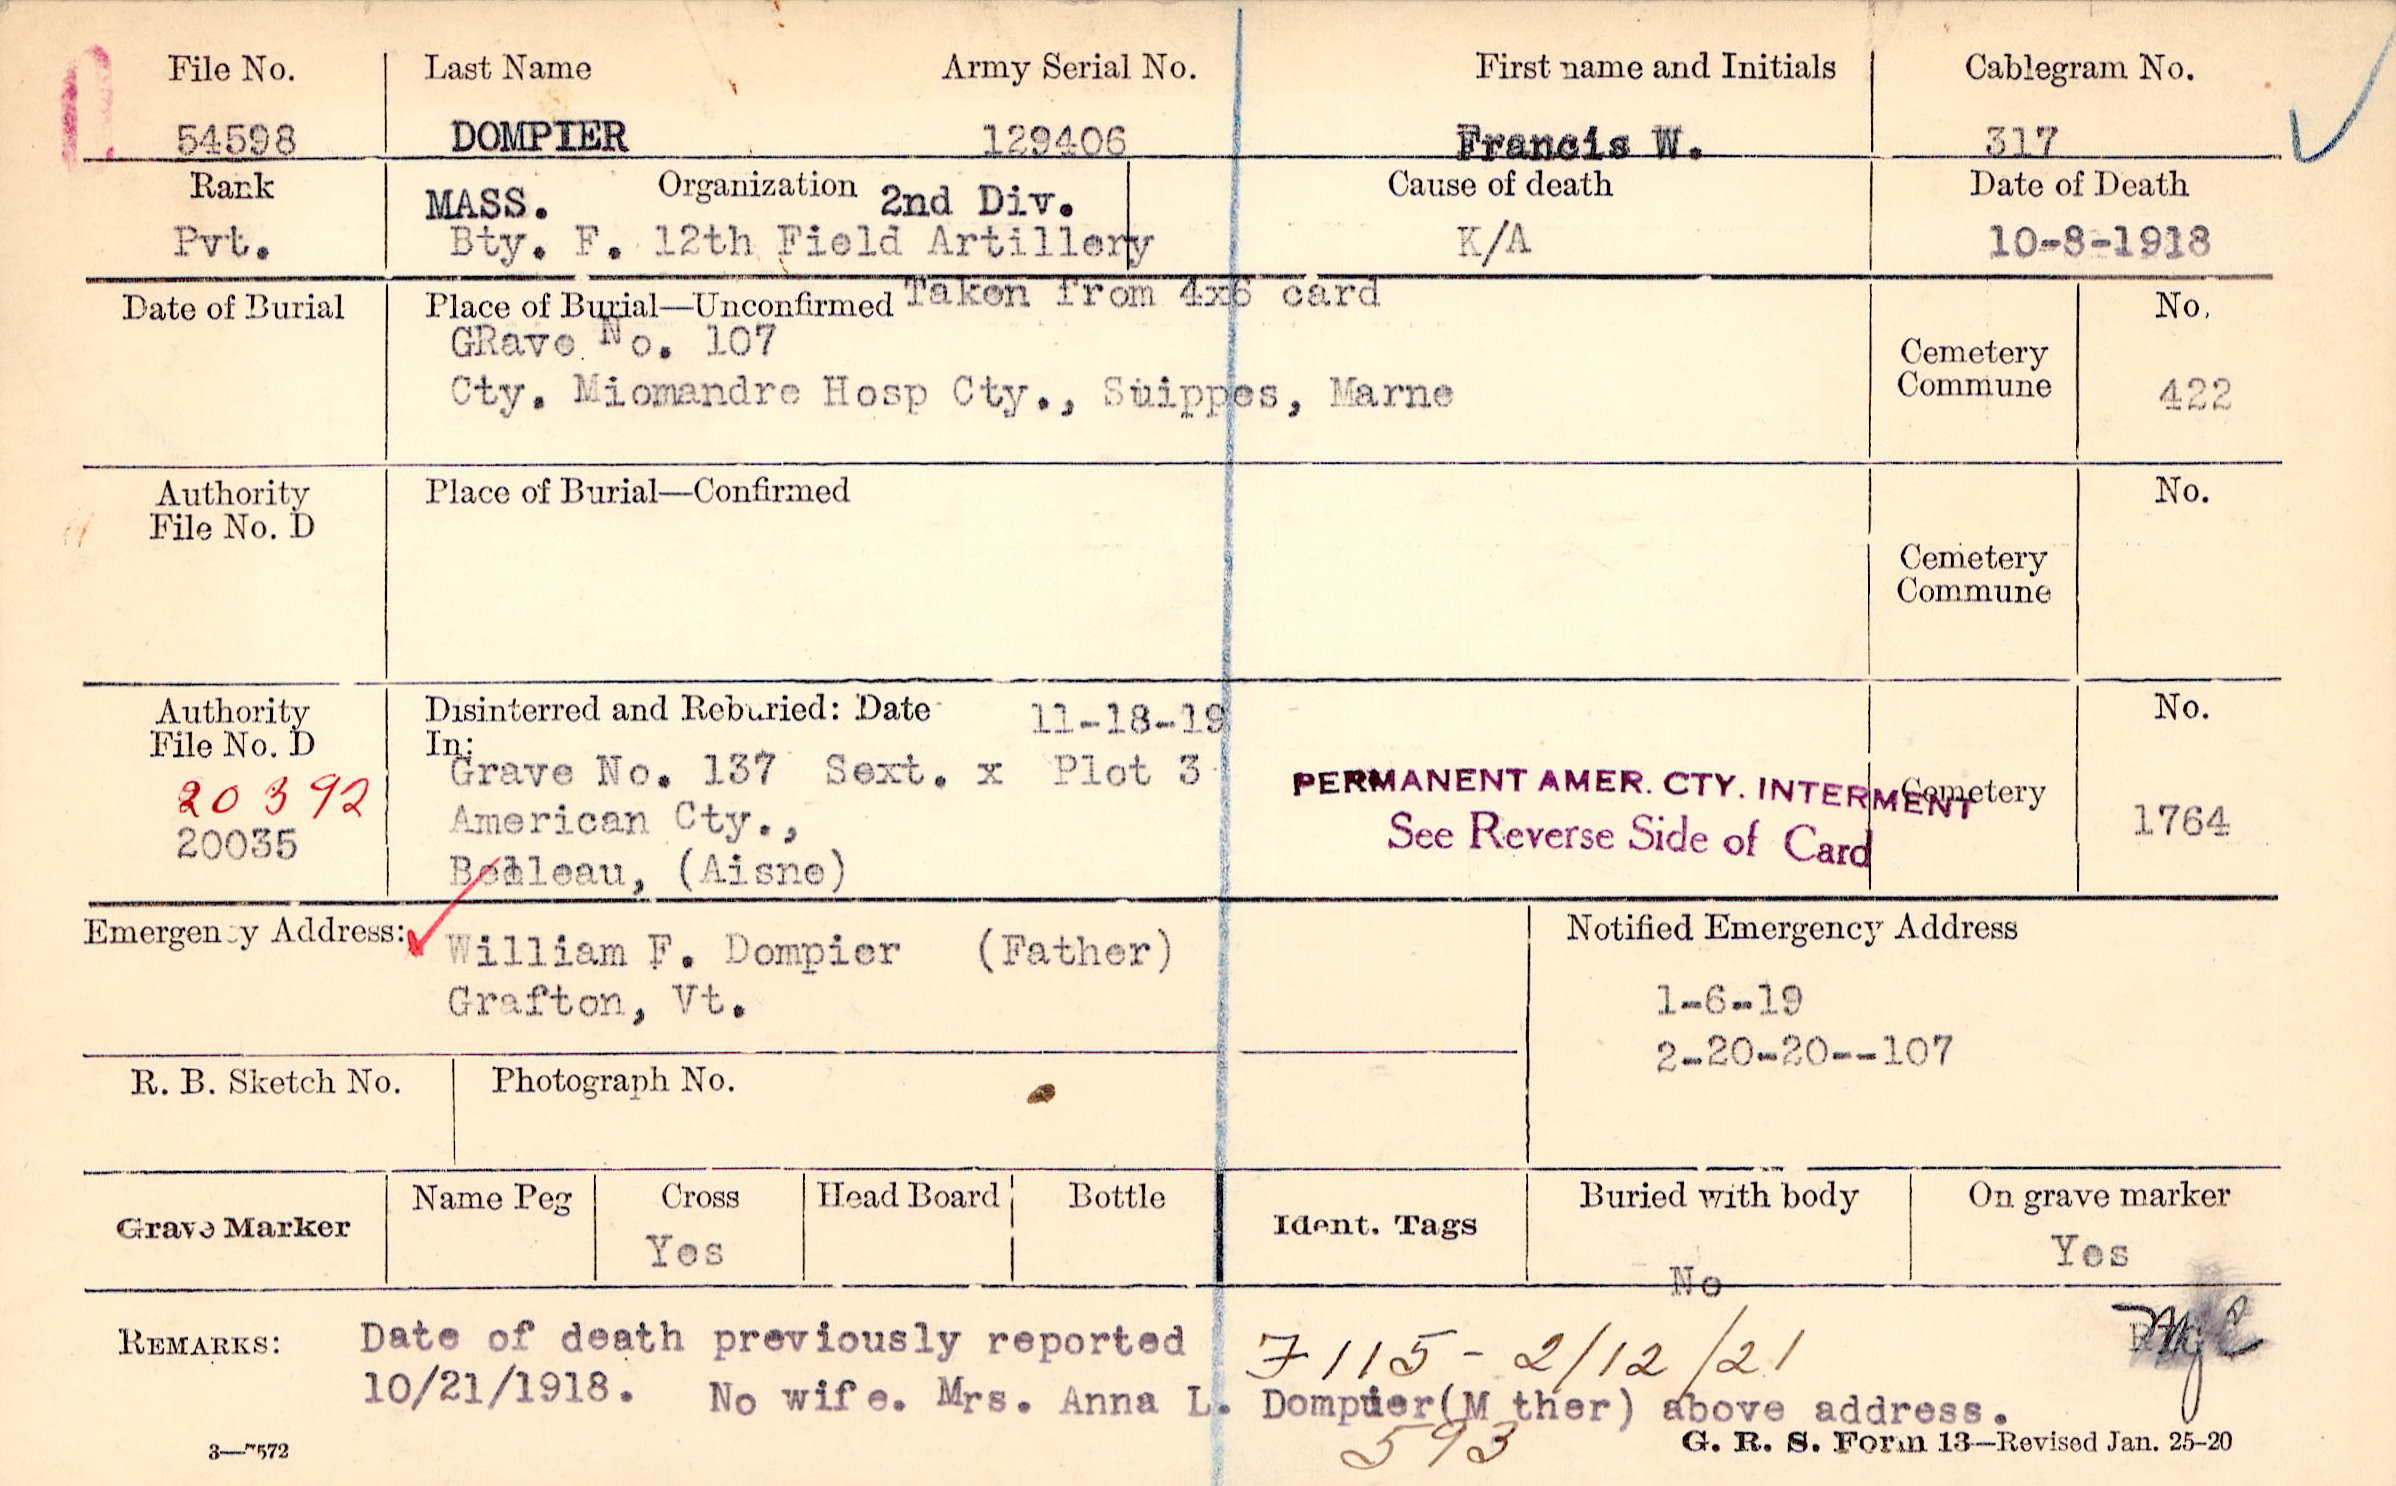 File No. Last Name Army Serial No. First name and Initials Cablegram No.
54598 DOMPIER 129406 Francis W. 317
Rank MASS. Organization 2nd Div. Cause of death Date of Death
Pvt. Bty. F. 12th Field Artillery K/A 10-8-1918
Date of Burial Place of Burial—Unconfirmed Taken from 4x6 card No.
GRave No. 107
Cemetery
Cty. Miomandre Hosp Cty., Suippes, Marne Commune 422
Authority Place of Burial—Confirmed No.
File No. D
Cemetery
Commune
Authority Disinterred and Reburied: Date 11-18-19 No.
File No. D In:
Grave No. 137 Sext. x Plot 3
20392 PERMANENT AMER. CTY. INTERMENT Cemetery
20035 American Cty., See Reverse Side of Card 1764
Belleau, (Aisne)
Emergency Address: William F. Dompier (Father) Notified Emergency Address
Grafton, Vt. 1-6-19
2-20-20--107
R. B. Sketch No. Photograph No.
Grave Marker Name Peg Cross Head Board Bottle Ident. Tags Buried with body On grave marker
Yes No Yes
REMARKS: Date of death previously reported 7115 - 2/12/21
10/21/1918. No wife. Mrs. Anna L. Dompier(M ther) above address.
593
3—7572 G. R. S. Form 13—Revised Jan. 25-20